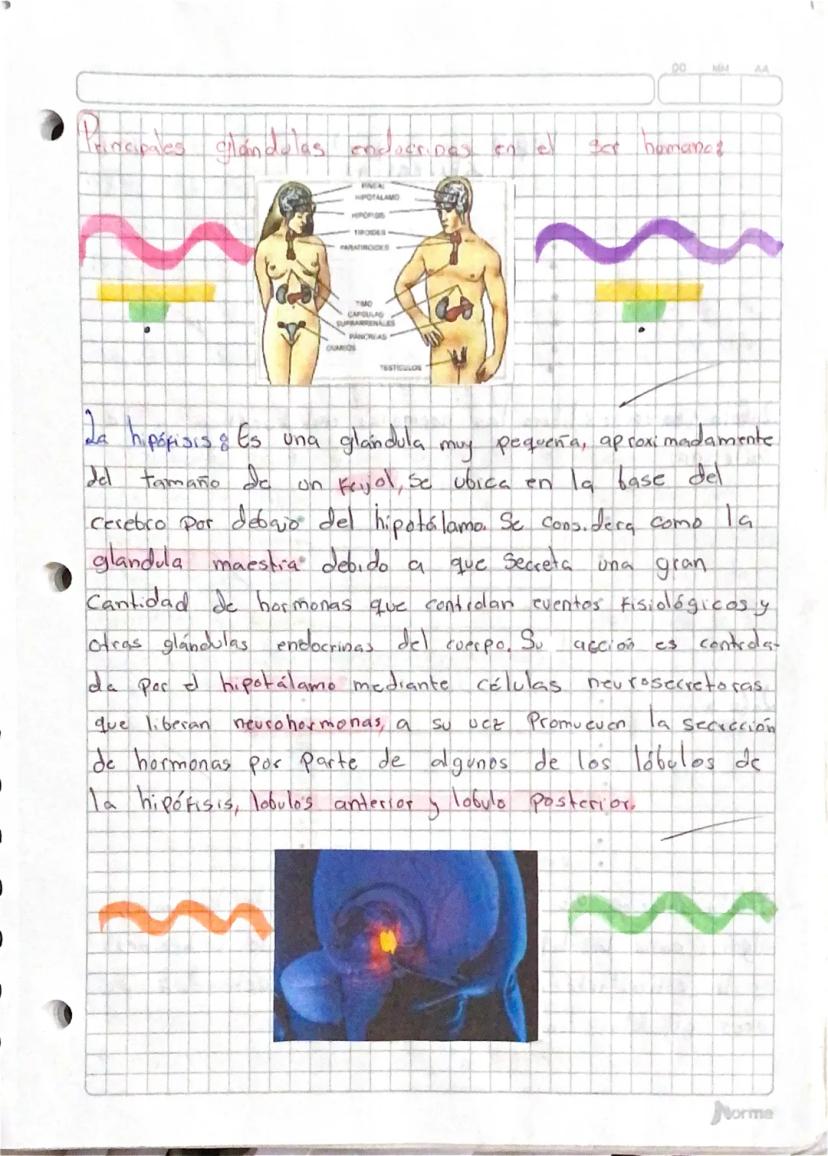 DD MM AA
Principales glándulas endocrinas en el ser humano:
PINEAL
HIPOTÁLAMO
HIPÓFISIS
TIROIDES
PARATIROIDES
TIMO
CAPSULAS
SUPRARRENALES
PÁNCREAS
OVARIOS
TESTÍCULOS
La hipófisis: Es una glándula muy pequeña, aproximadamente
del tamaño de un frejol, se ubica en la base del
cerebro por debajo del hipotálamo. Se considera como la
glandula maestra debido a que secreta una gran
cantidad de hormonas que controlan eventos fisiológicos y
otras glándulas endocrinas del cuerpo. Su acción es controla-
da por el hipotálamo mediante células neurosecretoras
que liberan neurohormonas, a su vez promueven la secrección
de hormonas por parte de algunos de los lóbulos de
la hipófisis, lobulos anterior y lobulo posterior.
Norma